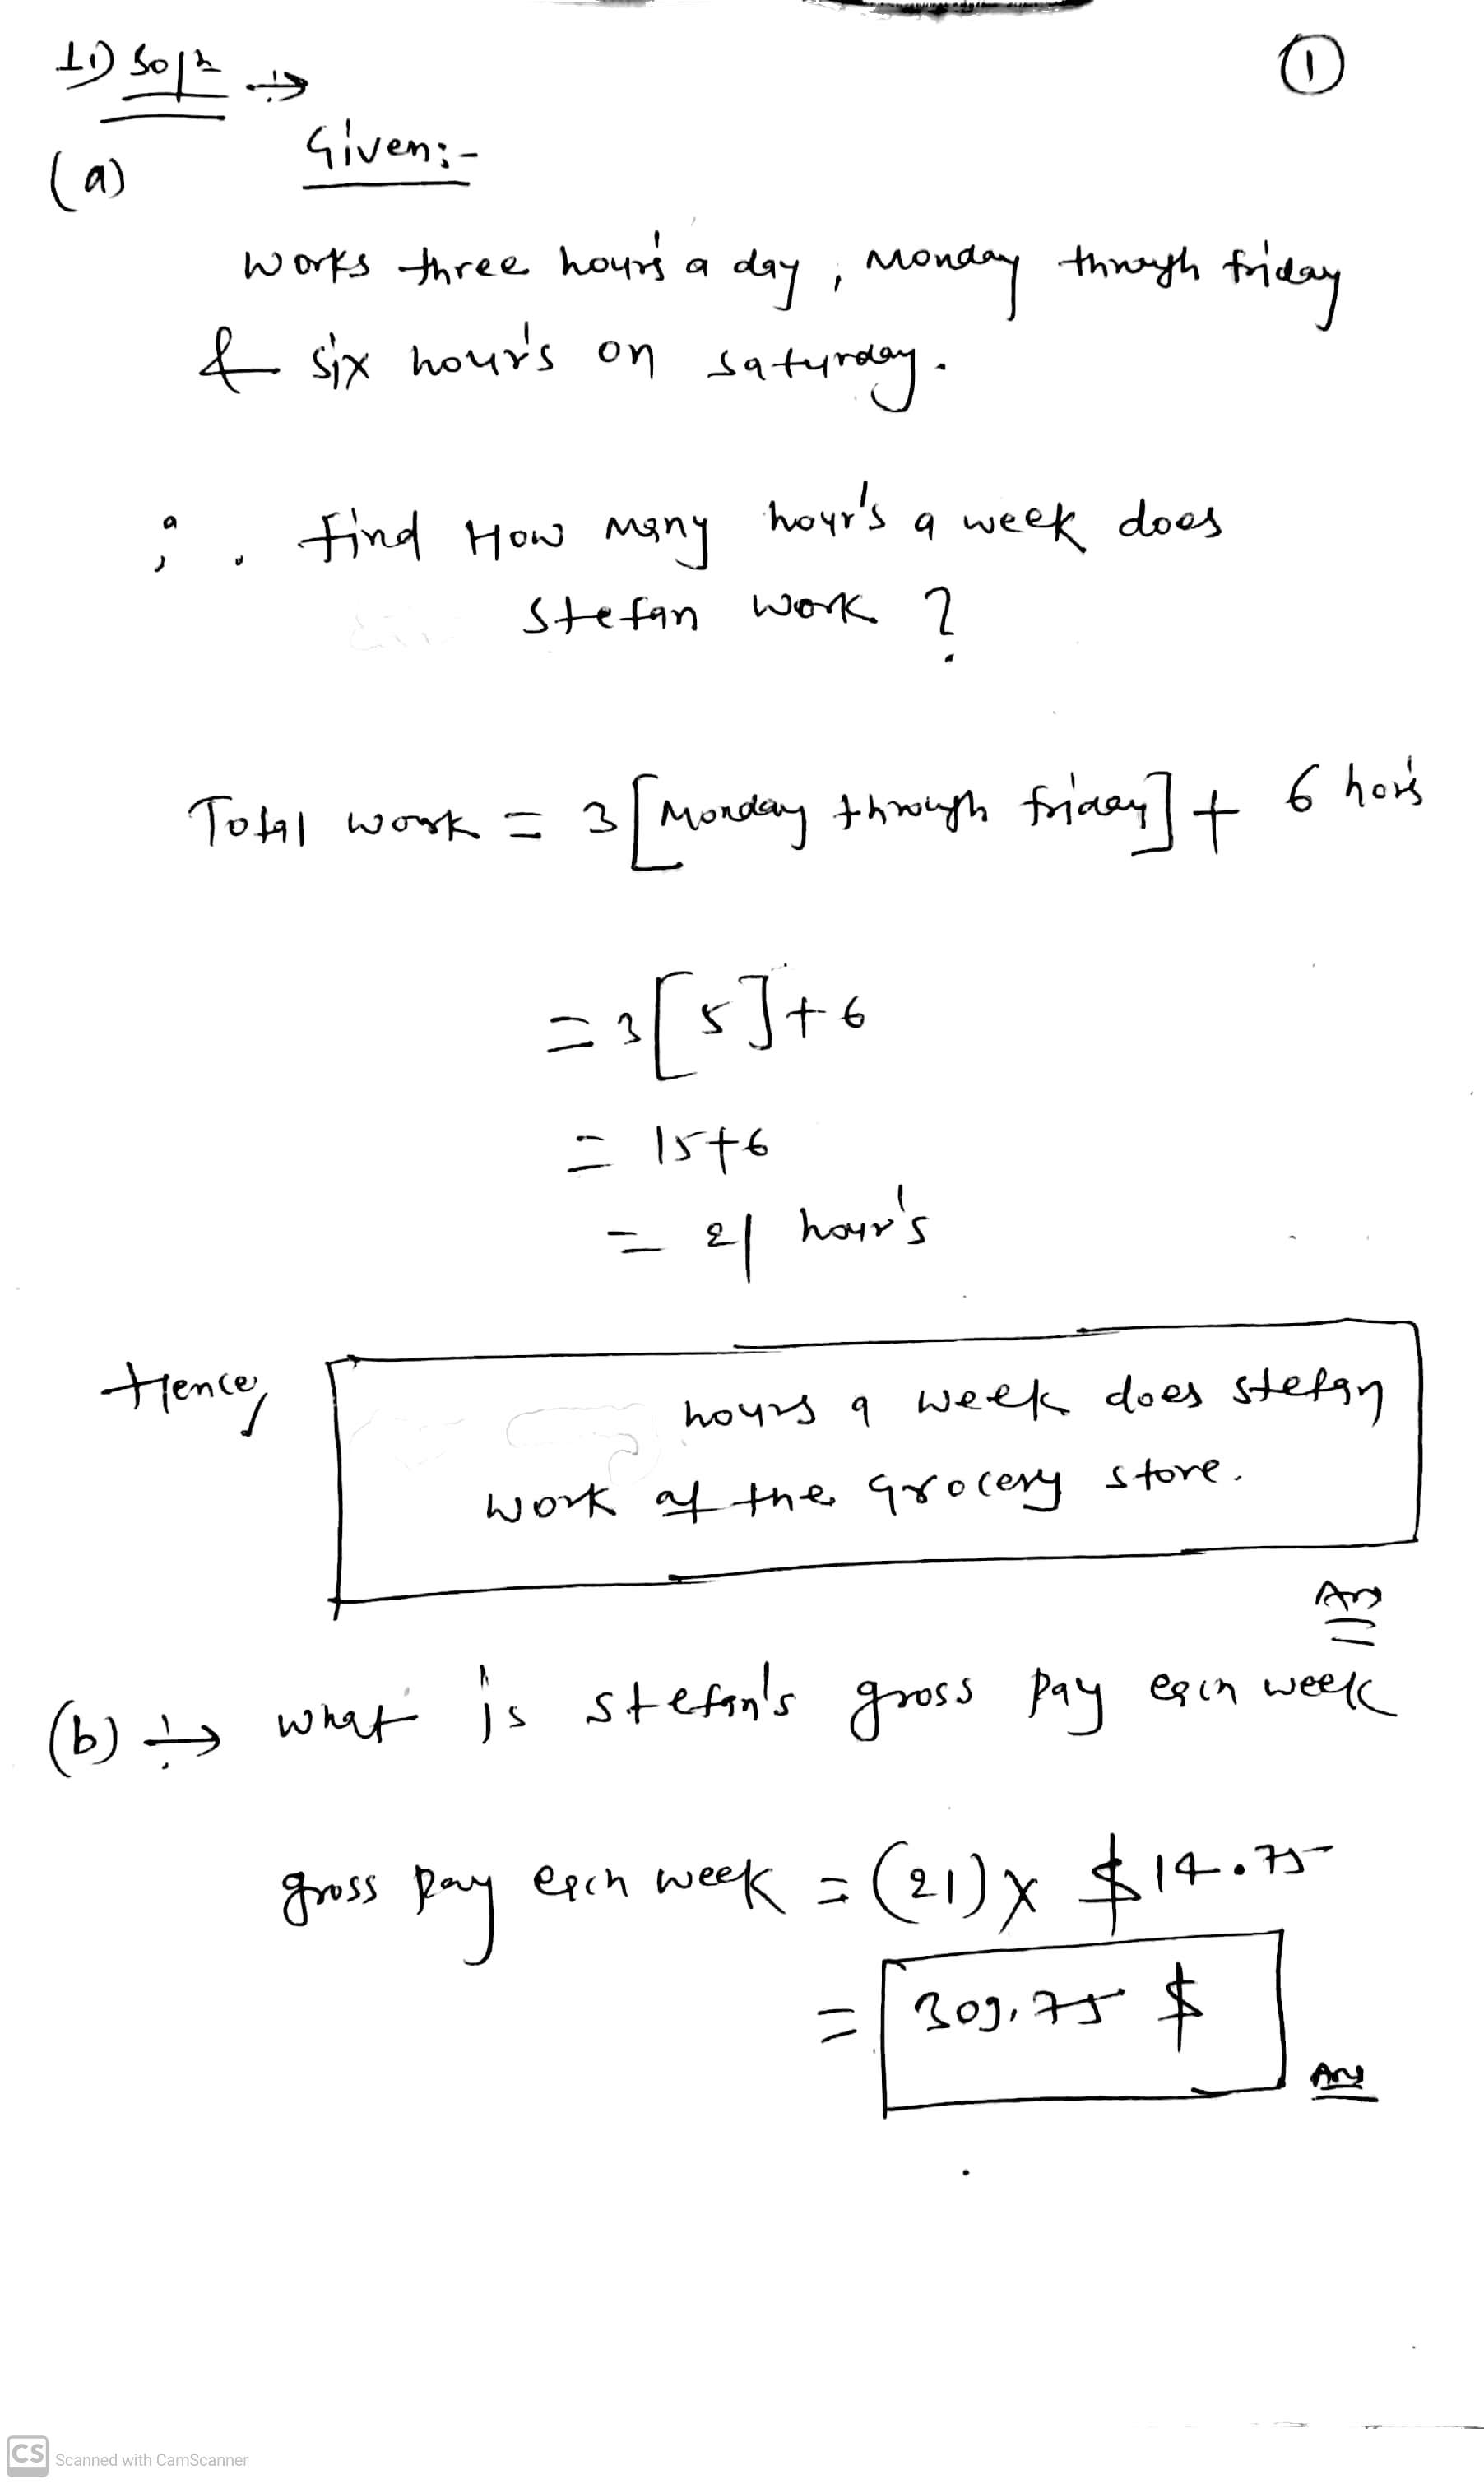 1) Solⁿ ①
(a) Given:-
works three hour's a day, Monday through friday
& six hour's on saturday.
∴ find How many hour's a week does
stefan work ?
Total work = 3[Monday through friday] + 6 hor's
= 3[5]+6
= 15+6
= 21 hour's
Hence, hours a week does stefan
work at the grocery store.
Ans
(b) what is stefan's gross pay each week
gross pay each week = (21) x $14.75
= 309.75 $
Ans
CS Scanned with CamScanner